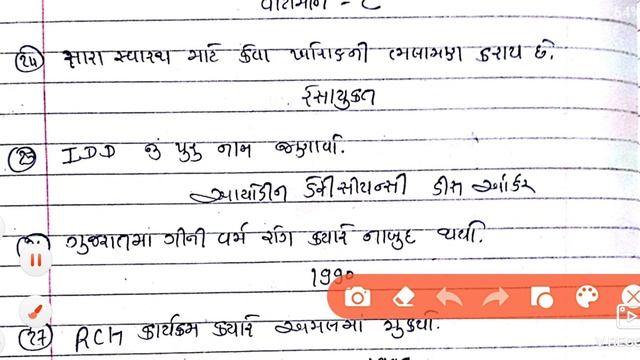 વિટામીન - C
(24) સારા સ્વાસ્થ માટે કેવા ખોરાકની ભલામણ કરાય છે.
રેસાયુકત
(25) IDD નું પુરૂ નામ જણાવો.
આયોડીન ડેફીસીયન્સી ડીસ ઓર્ડર
ગુજરાતમાં ગીની વર્મ રોગ કયારે નાબુદ થયો.
1990
(27) RCH કાર્યક્રમ કયારે અમલમાં મુકયો.